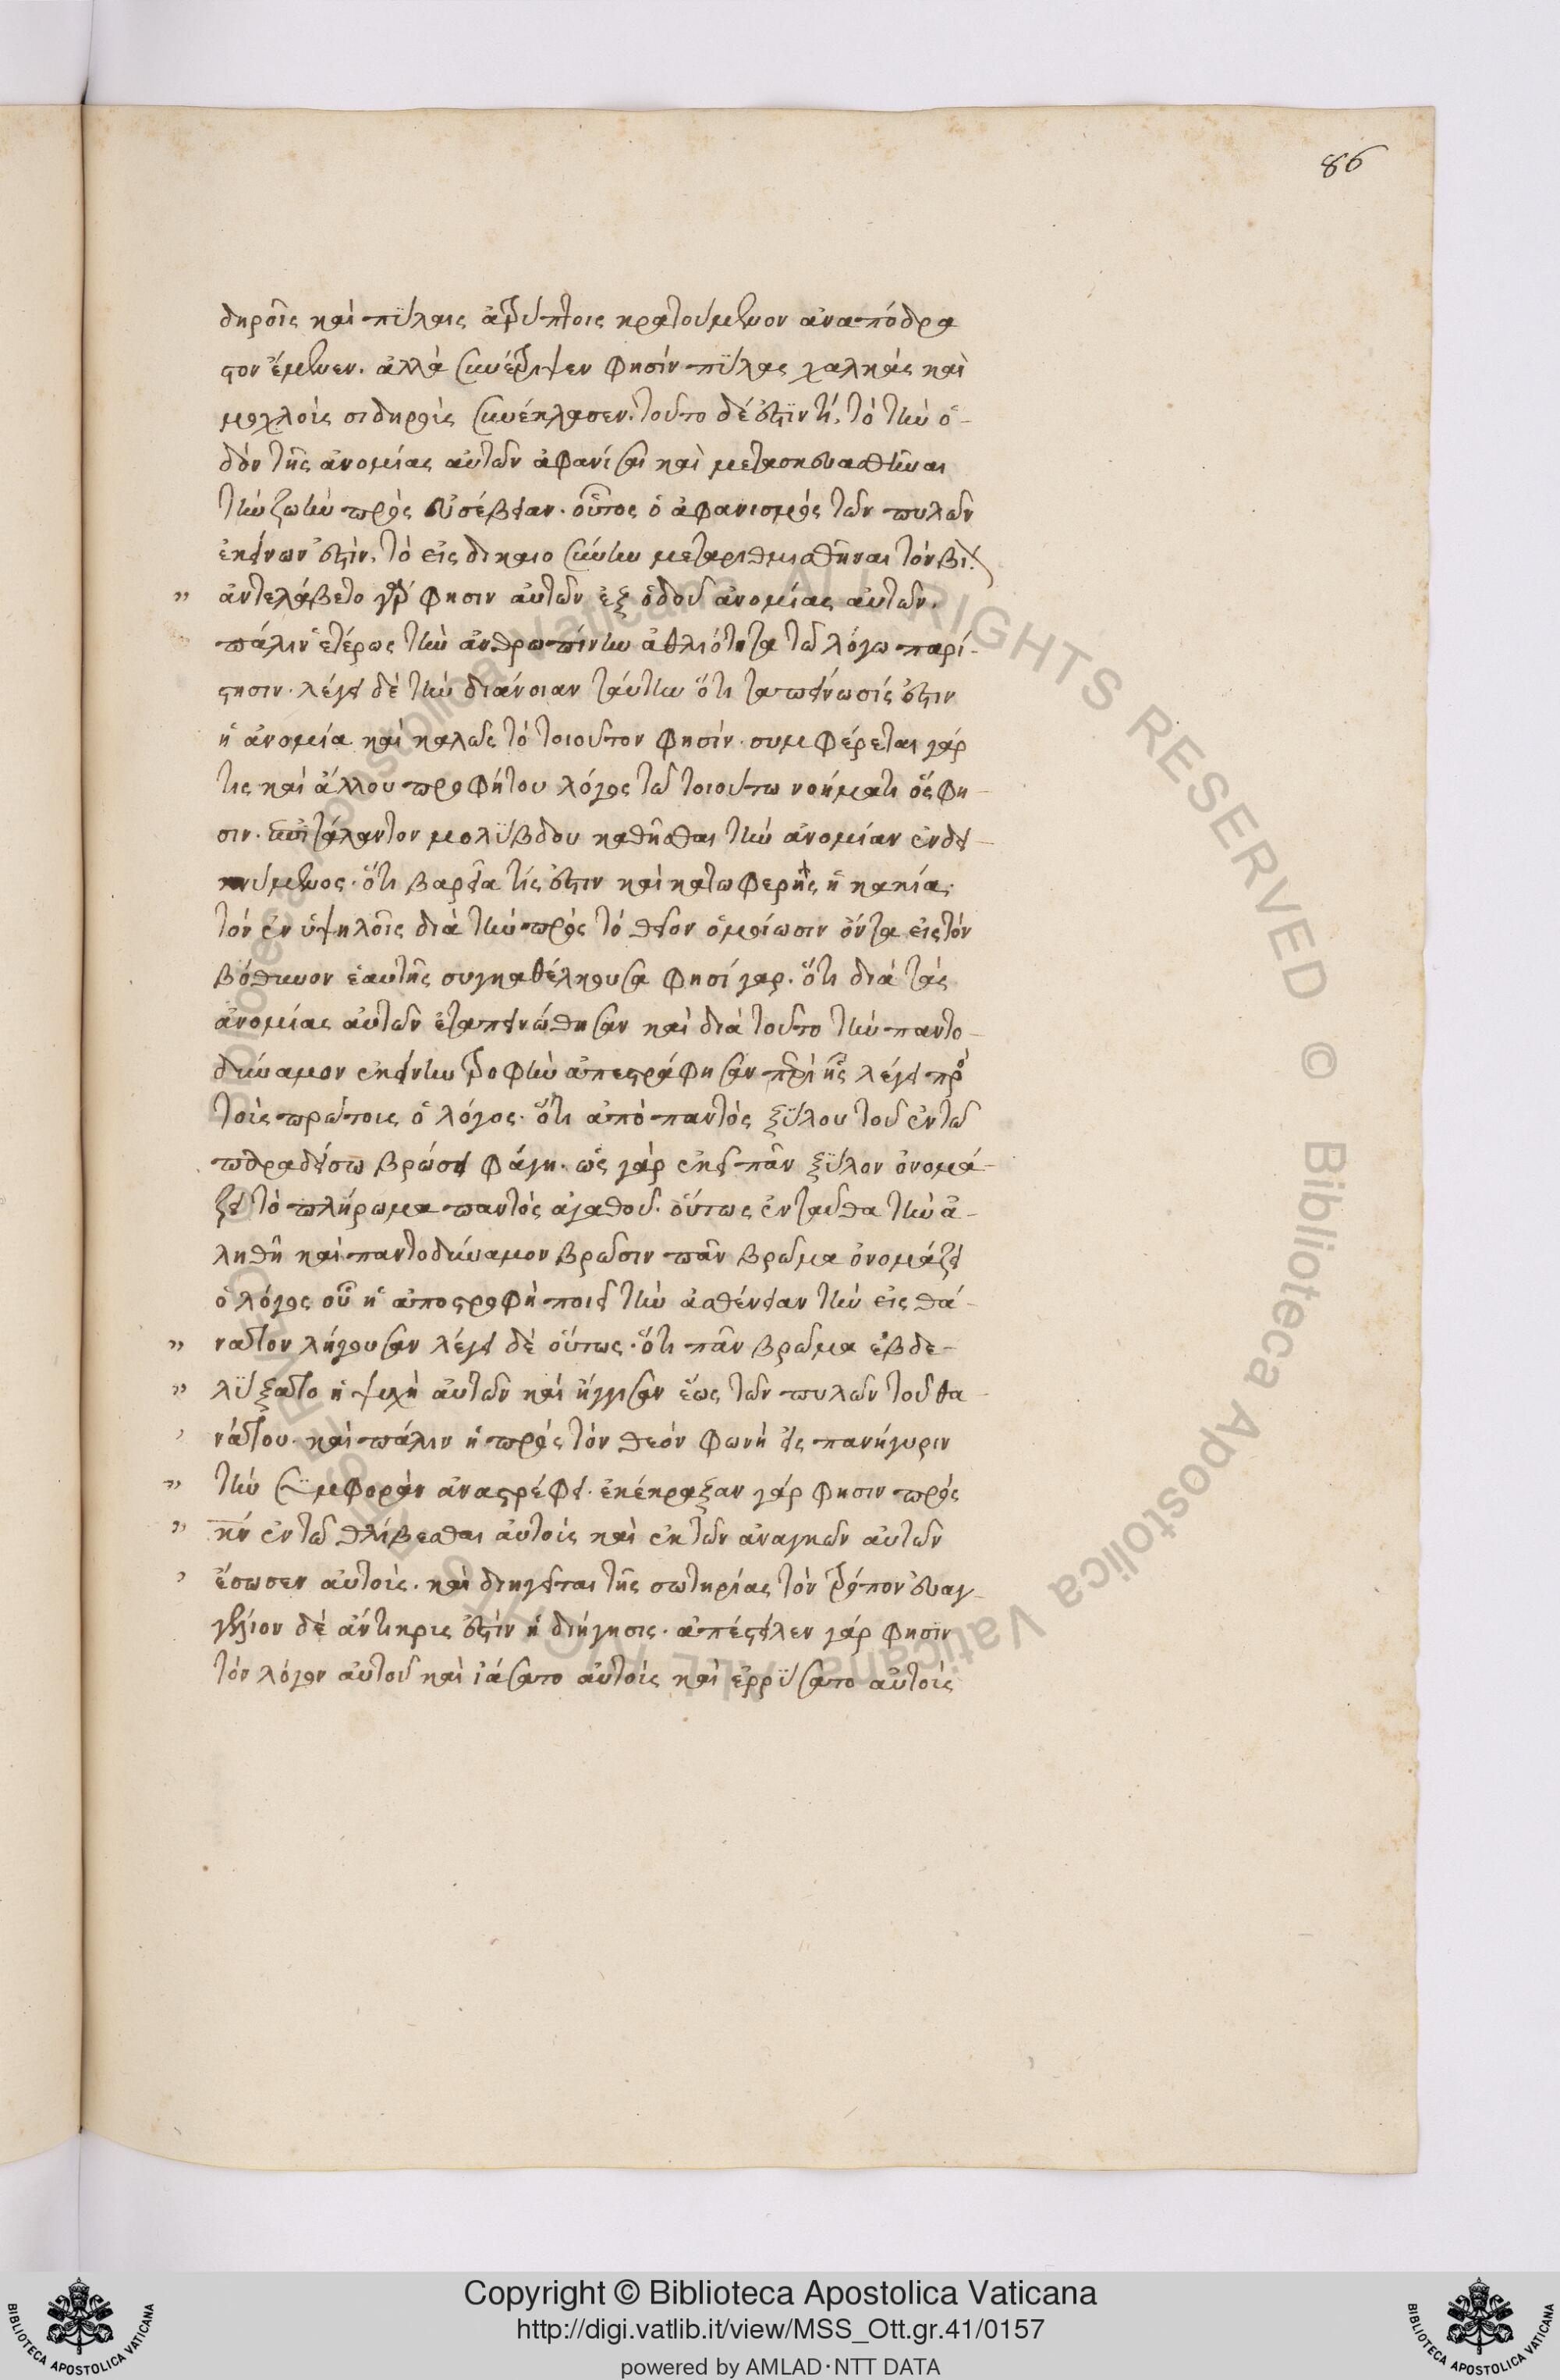 86
δηροῖς καὶ πύλαις ἀτρύπτοις κρατούμενον ἀναπόδρα
στον ἔμενεν. ἀλλὰ συνέτριψεν φησὶν πύλας χαλκάς καὶ
μοχλοὺς σιδηροῦς συνέκλασεν. τοῦτο δέ ἐστιν τί, τὸ τὴν ὁ-
δὸν τῆς ἀνομίας αὐτῶν ἀφανίσαι καὶ μετασκευασθῆναι
τὴν ζωὴν πρὸς εὐσέβειαν. οὗτος ὁ ἀφανισμός τῶν πυλῶν
ἐκείνων ἐστίν, τὸ εἰς δικαιοσύνην μεταριθμισθῆναι τὸν βί
„ ἀντελάβετο γὰρ φησιν αὐτῶν ἐξ ὁδοῦ ἀνομίας αὐτῶν.
πάλιν ἑτέρως τὴν ἀνθρωπίνην ἀθλιότητα τῶ λόγω παρί-
στησιν. λέγει δὲ τὴν διάνοιαν ταύτην ὅτι ταπείνωσίς ἐστιν
ἡ ἀνομία καὶ καλῶς τὸ τοιοῦτον φησίν. συμφέρεται γάρ
τις καὶ ἄλλου προφήτου λόγος τῶ τοιούτω νοήματι ὅς φη-
σιν. τάλαντον μολύβδου καθῆσθαι τὴν ἀνομίαν ἐνδει-
κνύμενος. ὅτι βαρεῖα τίς ἐστιν καὶ κατωφερής ἡ κακία.
τὸν ἐν ὑψηλοῖς διὰ τὴν πρὸς τὸ θεῖον ὁμοίωσιν ὄντα εἰς τὸν
βόθυνον ἑαυτῆς συγκαθέλκουσα φησί γαρ. ὅτι διὰ τὰς
ἀνομίας αὐτῶν ἐταπεινώθησαν καὶ διὰ τοῦτο τὴν παντο-
δύναμον ἐκείνην τροφὴν ἀπεστράφησαν περὶ ἧς λέγει πρὸ
τοῖς πρώτοις ὁ λόγος. ὅτι ἀπὸ παντὸς ξύλου τοῦ ἐν τῶ
παραδείσω βρώσει φάγη. ὡς γὰρ ἐκεῖ πᾶν ξύλον ὀνομά-
ζει τὸ πλήρωμα παντὸς ἀγαθοῦ. οὕτως ἐνταῦθα τὴν ἀ-
ληθῆ καὶ παντοδύναμον βρῶσιν πᾶν βρῶμα ὀνομάζει
ὁ λόγος οὗ ἡ ἀποστροφὴ ποιεῖ τὴν ἀσθένειαν τὴν εἰς θά-
„ νατον λήγουσαν λέγει δὲ οὕτως. ὅτι πᾶν βρῶμα ἐβδε-
„ λύξατο ἡ ψυχὴ αὐτῶν καὶ ἤγγισαν ἕως τῶν πυλῶν τοῦ θα-
νάτου. καὶ πάλιν ἡ πρὸς τὸν θεὸν φωνὴ εἰς πανήγυριν
„ τὴν συμφορὰν ἀναστρέφει. ἐκέκραξαν γάρ φησιν πρὸς
„ κν ἐν τῶ θλίβεσθαι αὐτοὺς καὶ ἐκ τῶν ἀναγκῶν αὐτῶν
ἔσωσεν αὐτοὺς. καὶ διηγεῖται τῆς σωτηρίας τὸν τρόπον εὐαγ-
γέλιον δὲ ἄντικρις ἐστὶν ἡ διήγησις. ἀπέστειλεν γάρ φησὶν
τὸν λόγον αὐτοῦ καὶ ἰάσατο αὐτοὺς καὶ ἐρρύσατο αὐτοὺς
© Biblioteca Apostolica Vaticana ALL RIGHTS RESERVED
Copyright © Biblioteca Apostolica Vaticana
http://digi.vatlib.it/view/MSS_Ott.gr.41/0157
powered by AMLAD·NTT DATA
BIBLIOTECA APOSTOLICA VATICANA
BIBLIOTECA APOSTOLICA VATICANA